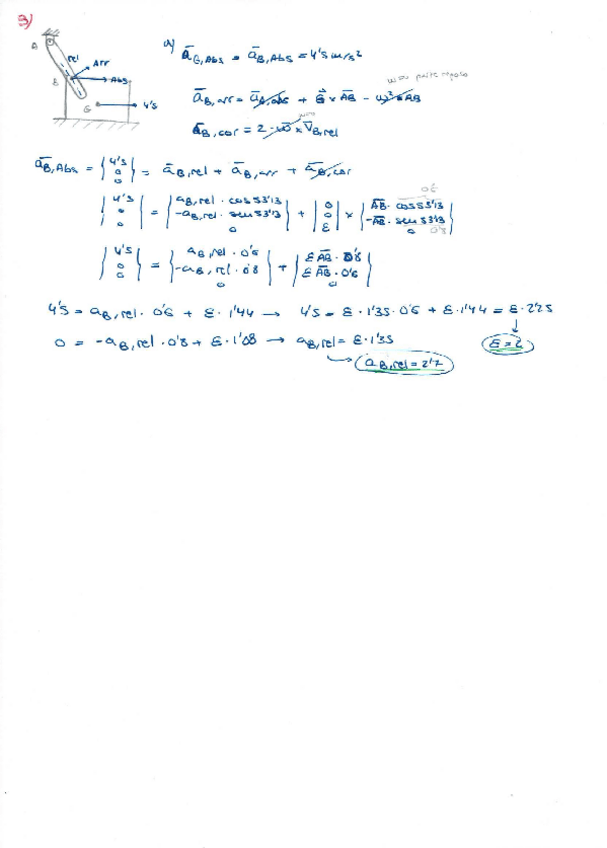 3)
A
rel
Arr
B
Abs
G
4'5
a) āG,Abs = āB,Abs = 4'5 m/s²
āB,arr = āA,abs + ε̄ × AB - ω² · AB
ω=0 parte reposo
āB,cor = 2 · ω̄ × v̄B,rel
ω=0
āB,Abs = {4'5 0 0} = āB,rel + āB,arr + āB,cor
{4'5 0 0} = {aB,rel · cos53'13 -aB,rel · sen53'13 0} + {0 0 ε} × {AB · cos53'13 -AB · sen53'13 0}
0'6
0'8
{4'5 0 0} = {aB,rel · 0'6 -aB,rel · 0'8 0} + {ε AB · 0'8 ε AB · 0'6 0}
4'5 = aB,rel · 0'6 + ε · 1'44 → 4'5 = ε · 1'35 · 0'6 + ε · 1'44 = ε · 2'25
0 = -aB,rel · 0'8 + ε · 1'08 → aB,rel = ε · 1'35
ε = 2
aB,rel = 2'7